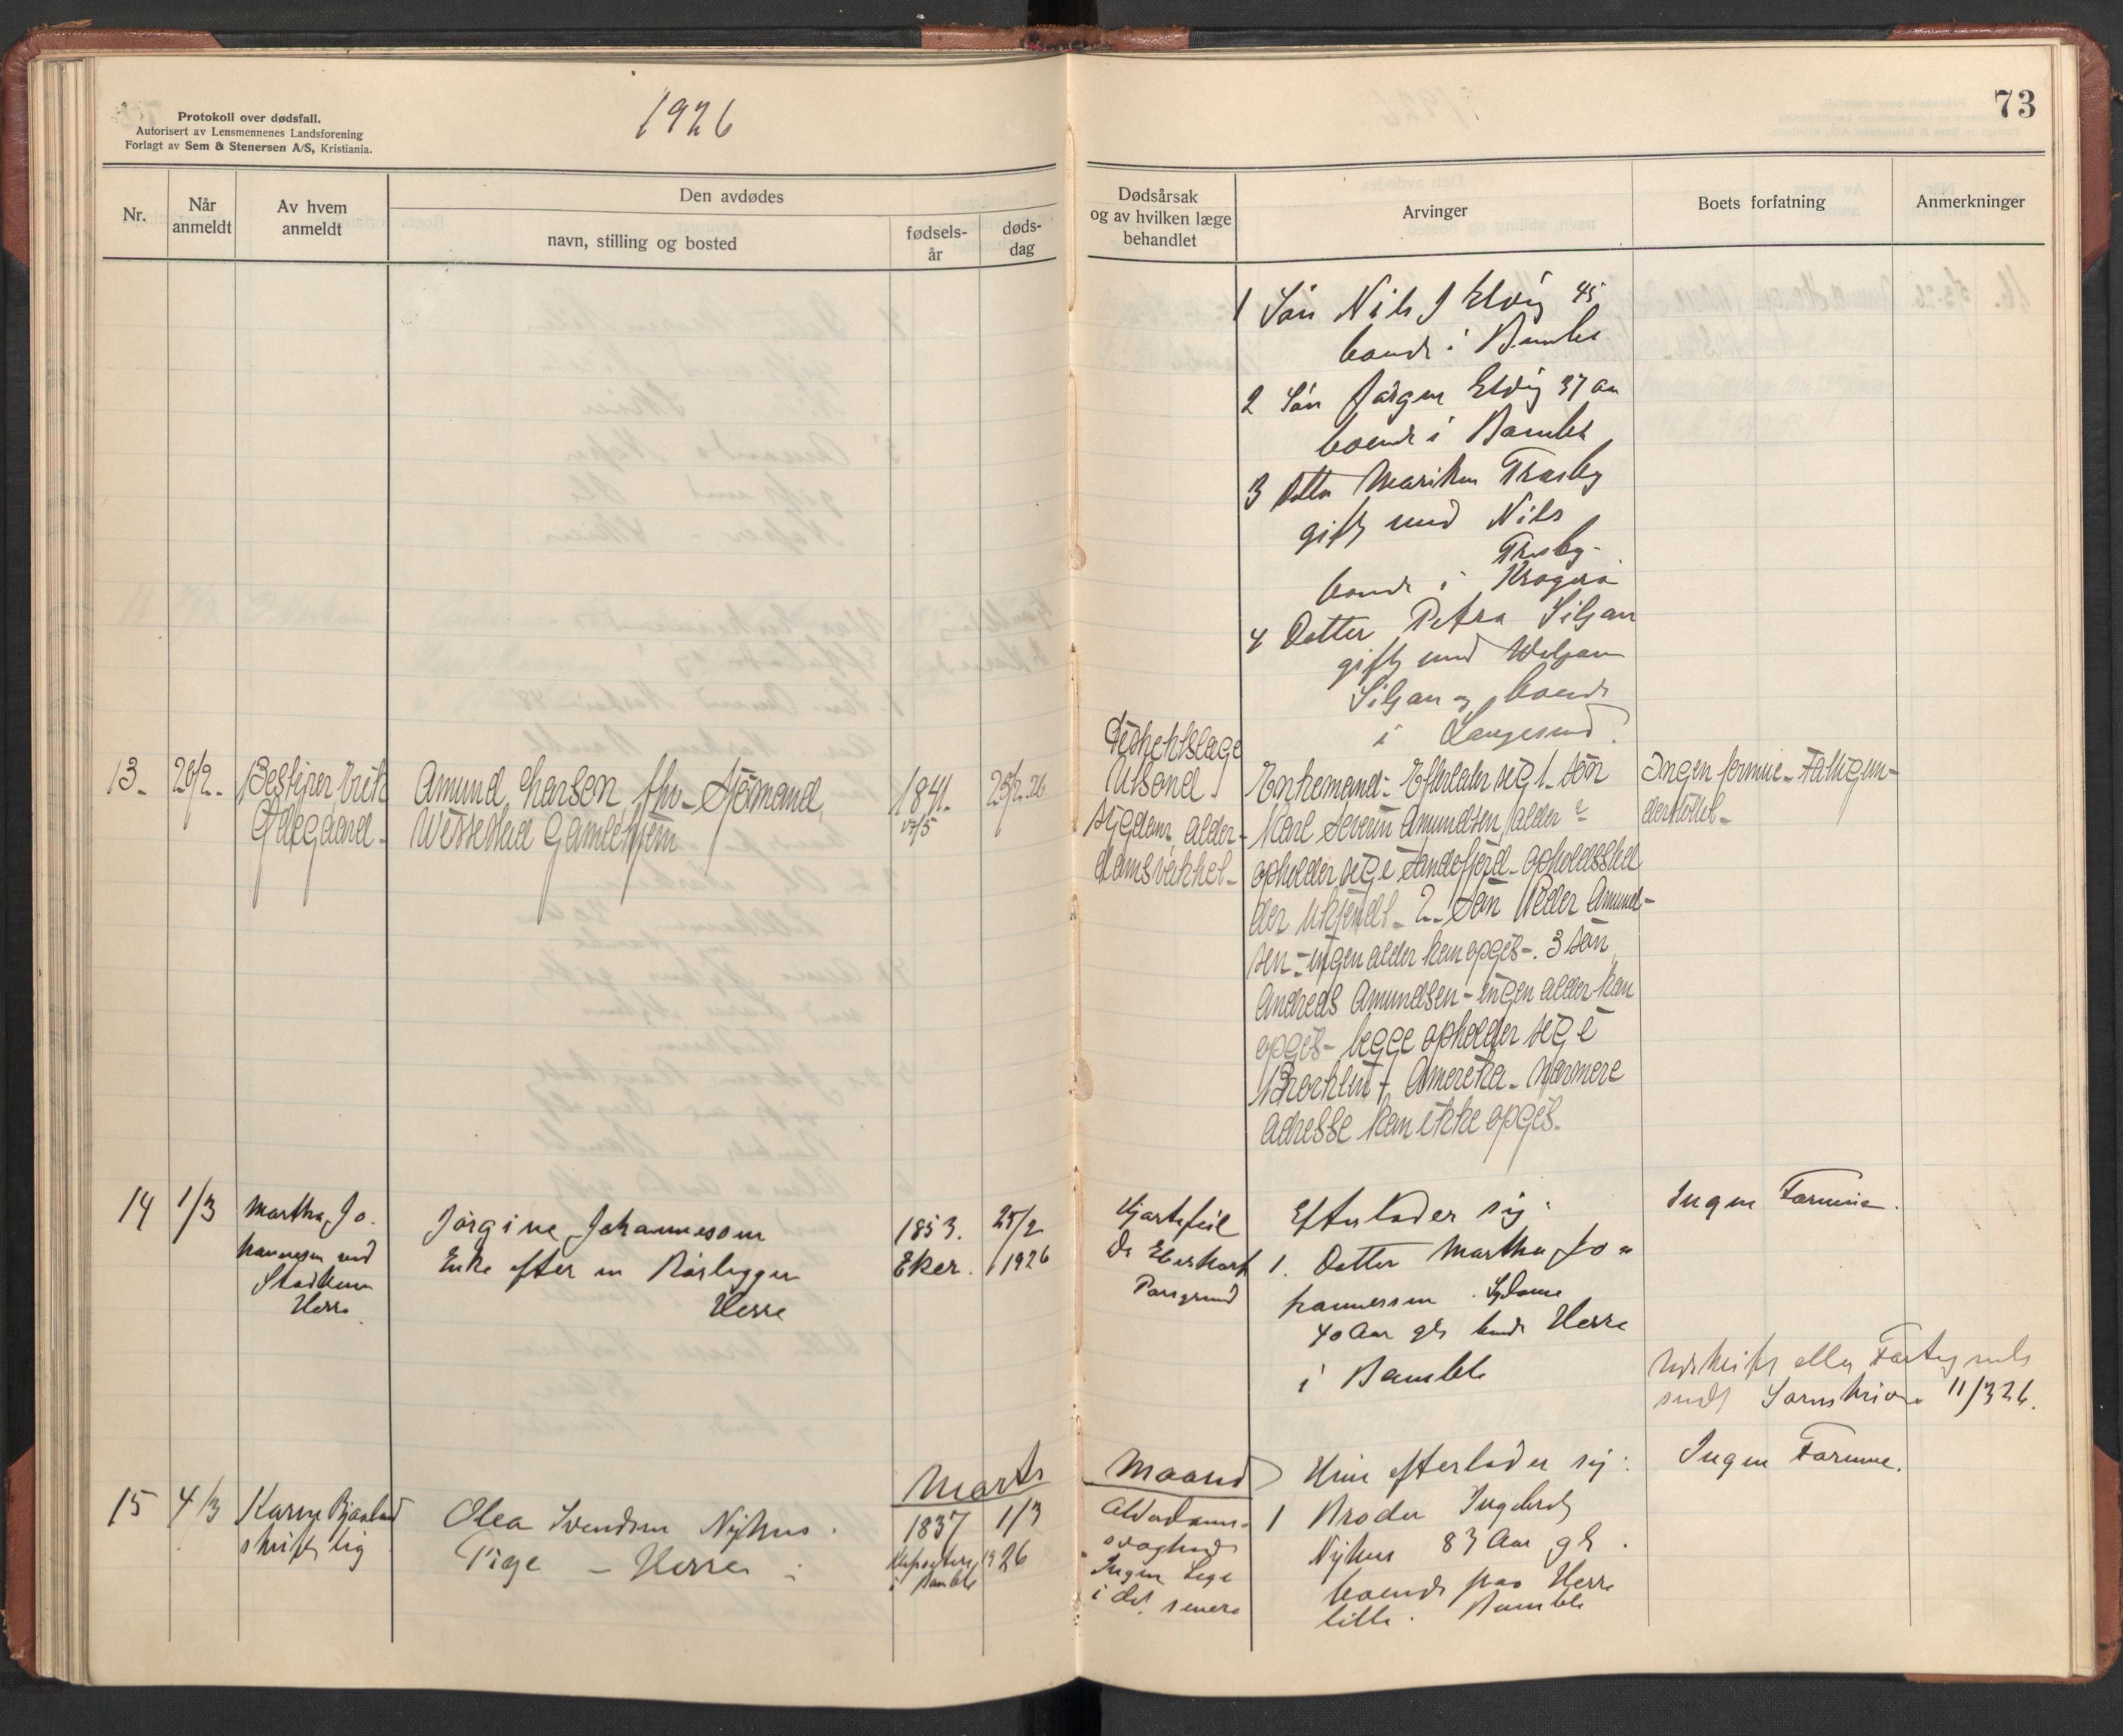 Protokoll over dødsfall.
Autorisert av Lensmennenes Landsforening
Forlagt av Sem & Stenersen A/S, Kristiania.
1926
73
Nr.
Når
anmeldt
Av hvem
anmeldt
Den avdødes
navn, stilling og bosted
fødsels-
år
døds-
dag
Dødsårsak
og av hvilken læge
behandlet
Arvinger
Boets forfatning
Anmerkninger
1 Sön Nils J Elvig 45
boende i Bamble
2 Sön Jörgen Elvig 37 aar
boende i Bamble
3 Datter Trosby
gift med Nils
Trosby-
boende i Kragerö
4 Datter Petra Siljan
gift med
Siljan og boende
i Langesund.
13.
26/2.
Bestyrer Erik
Ödegaard.
Amund Larsen fhv. Sjömand,
Gamlehjem
1841.
17/5
25/2.26
Distriktslæge
Utsond.
sygdom, alder-
domssvækkel-
Enkemand. Efterlater seg 1. sön
Karl Severin Amundsen, alder ?
opholder seg i Sandefjord. opholdssted
der ukjendt. 2. Sön Peder Amund-
sen - ingen alder kan opgis -. 3 sön
Andreas Amundsen - ingen alder kan
opgis - begge opholder seg i
Brocklin i Amerika. nærmere
adresse kan ikke opgis.
Ingen formue. Fattigun-
derstöttet.
14
1/3
Martha Jo-
hannesen ved
Stathum
Herre.
Jörgine Johannesen
Enke efter en Rörlegger
Herre
1853.
Eker.
25/2
1926
Hjertefeil
Dr
Porsgrund
Efterlader sig:
1. Datter Martha Jo-
hannessen.
40 Aar gl. boende Herre
i Bamble
Ingen Formue.
Utskrift eller
sendt Sorenskriver 11/3 26.
Marts Maaned
15
4/3
Karen Bjaaland
skriftlig
Olea Svendsen Nyhus.
Pige - Herre
1837
i Bamble
1/3
1926
Alderdoms-
svaghed
Ingen Lege
i det senere
Hun efterlader sig:
1 Broder Ingebret
Nyhus 83 Aar gl.
boende paa Herre
Bamble
Ingen Formue.